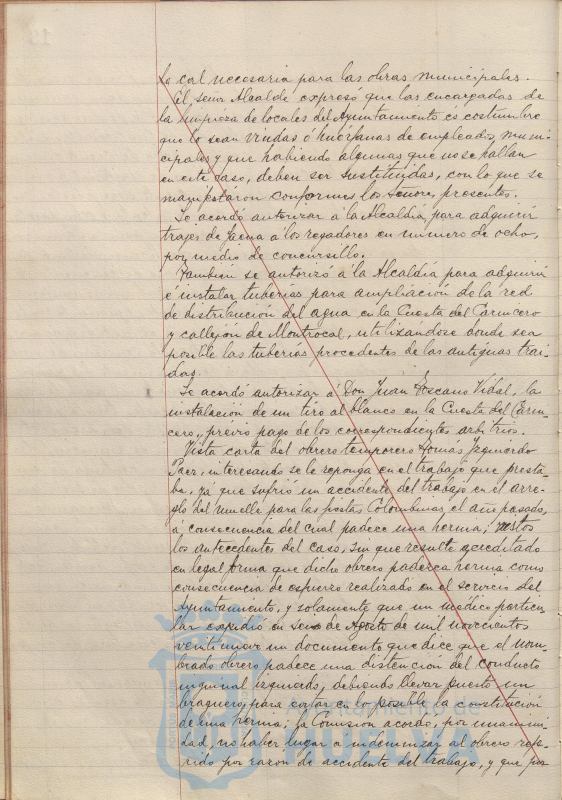 la cal necesaria para las obras municipales.
El señor Alcalde expresó que las encargadas de
la limpieza de locales del Ayuntamiento es costumbre
que lo sean viudas ó huérfanas de empleados muni-
cipales y que habiendo algunas que no se hallan
en este caso, deben ser sustituidas, con lo que se
manifestaron conformes los señores presentes.
Se acordó autorizar á la Alcaldía para adquirir
trajes de faena á los regadores en número de ocho,
por medio de concursillo.
Tambien se autorizó á la Alcaldía para adquirir
é instalar tuberías para ampliación de la red
de distribución del agua en la Cuesta del Carnicero
y callejón de Montrocal, utilizandose donde sea
posible las tuberías procedentes de las antiguas traí-
das.
Se acordó autorizar á Don Juan Toscano Vidal, la
instalación de un tiro al blanco en la Cuesta del Carni-
cero, previo pago de los correspondientes arbitrios.
Vista carta del obrero temporero Tomás Izquierdo
Paez, interesando se le reponga en el trabajo que presta-
ba, ya que sufrió un accidente del trabajo en el arre-
glo del muelle para las fiestas Colombinas el año pasado,
á consecuencia del cual padece una hernia; vistos
los antecedentes del caso, sin que resulte acreditado
en legal forma que dicho obrero padezca hernia como
consecuencia de esfuerzo realizado en el servicio del
Ayuntamiento, y solamente que un médico particu-
lar expidió en seis de Agosto de mil novecientos
veintinueve un documento que dice que el nom-
brado obrero padece una distención del conducto
inguinal izquierdo, debiendo llevar puesto un
braguero para evitar en lo posible la constitución
de una hernia; la Comision acordó, por unanimi-
dad, no haber lugar a indemnizar al obrero refe-
rido por razon de accidente del trabajo, y que por
Ayuntamiento de
HUELVA